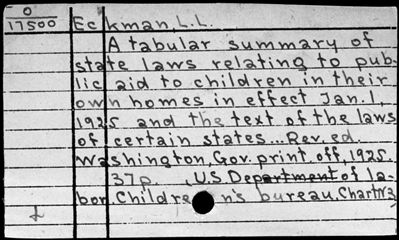 O
17500
Eckman, L.L.
A tabular summary of
state laws relating to pub-
lic aid to children in their
own homes in effect Jan. 1,
1925 and the text of the laws
of certain states... Rev. ed.
Washington, Gov. print. off, 1925.
37p. (U.S. Department of la-
bor. Children's bureau. Chart N3